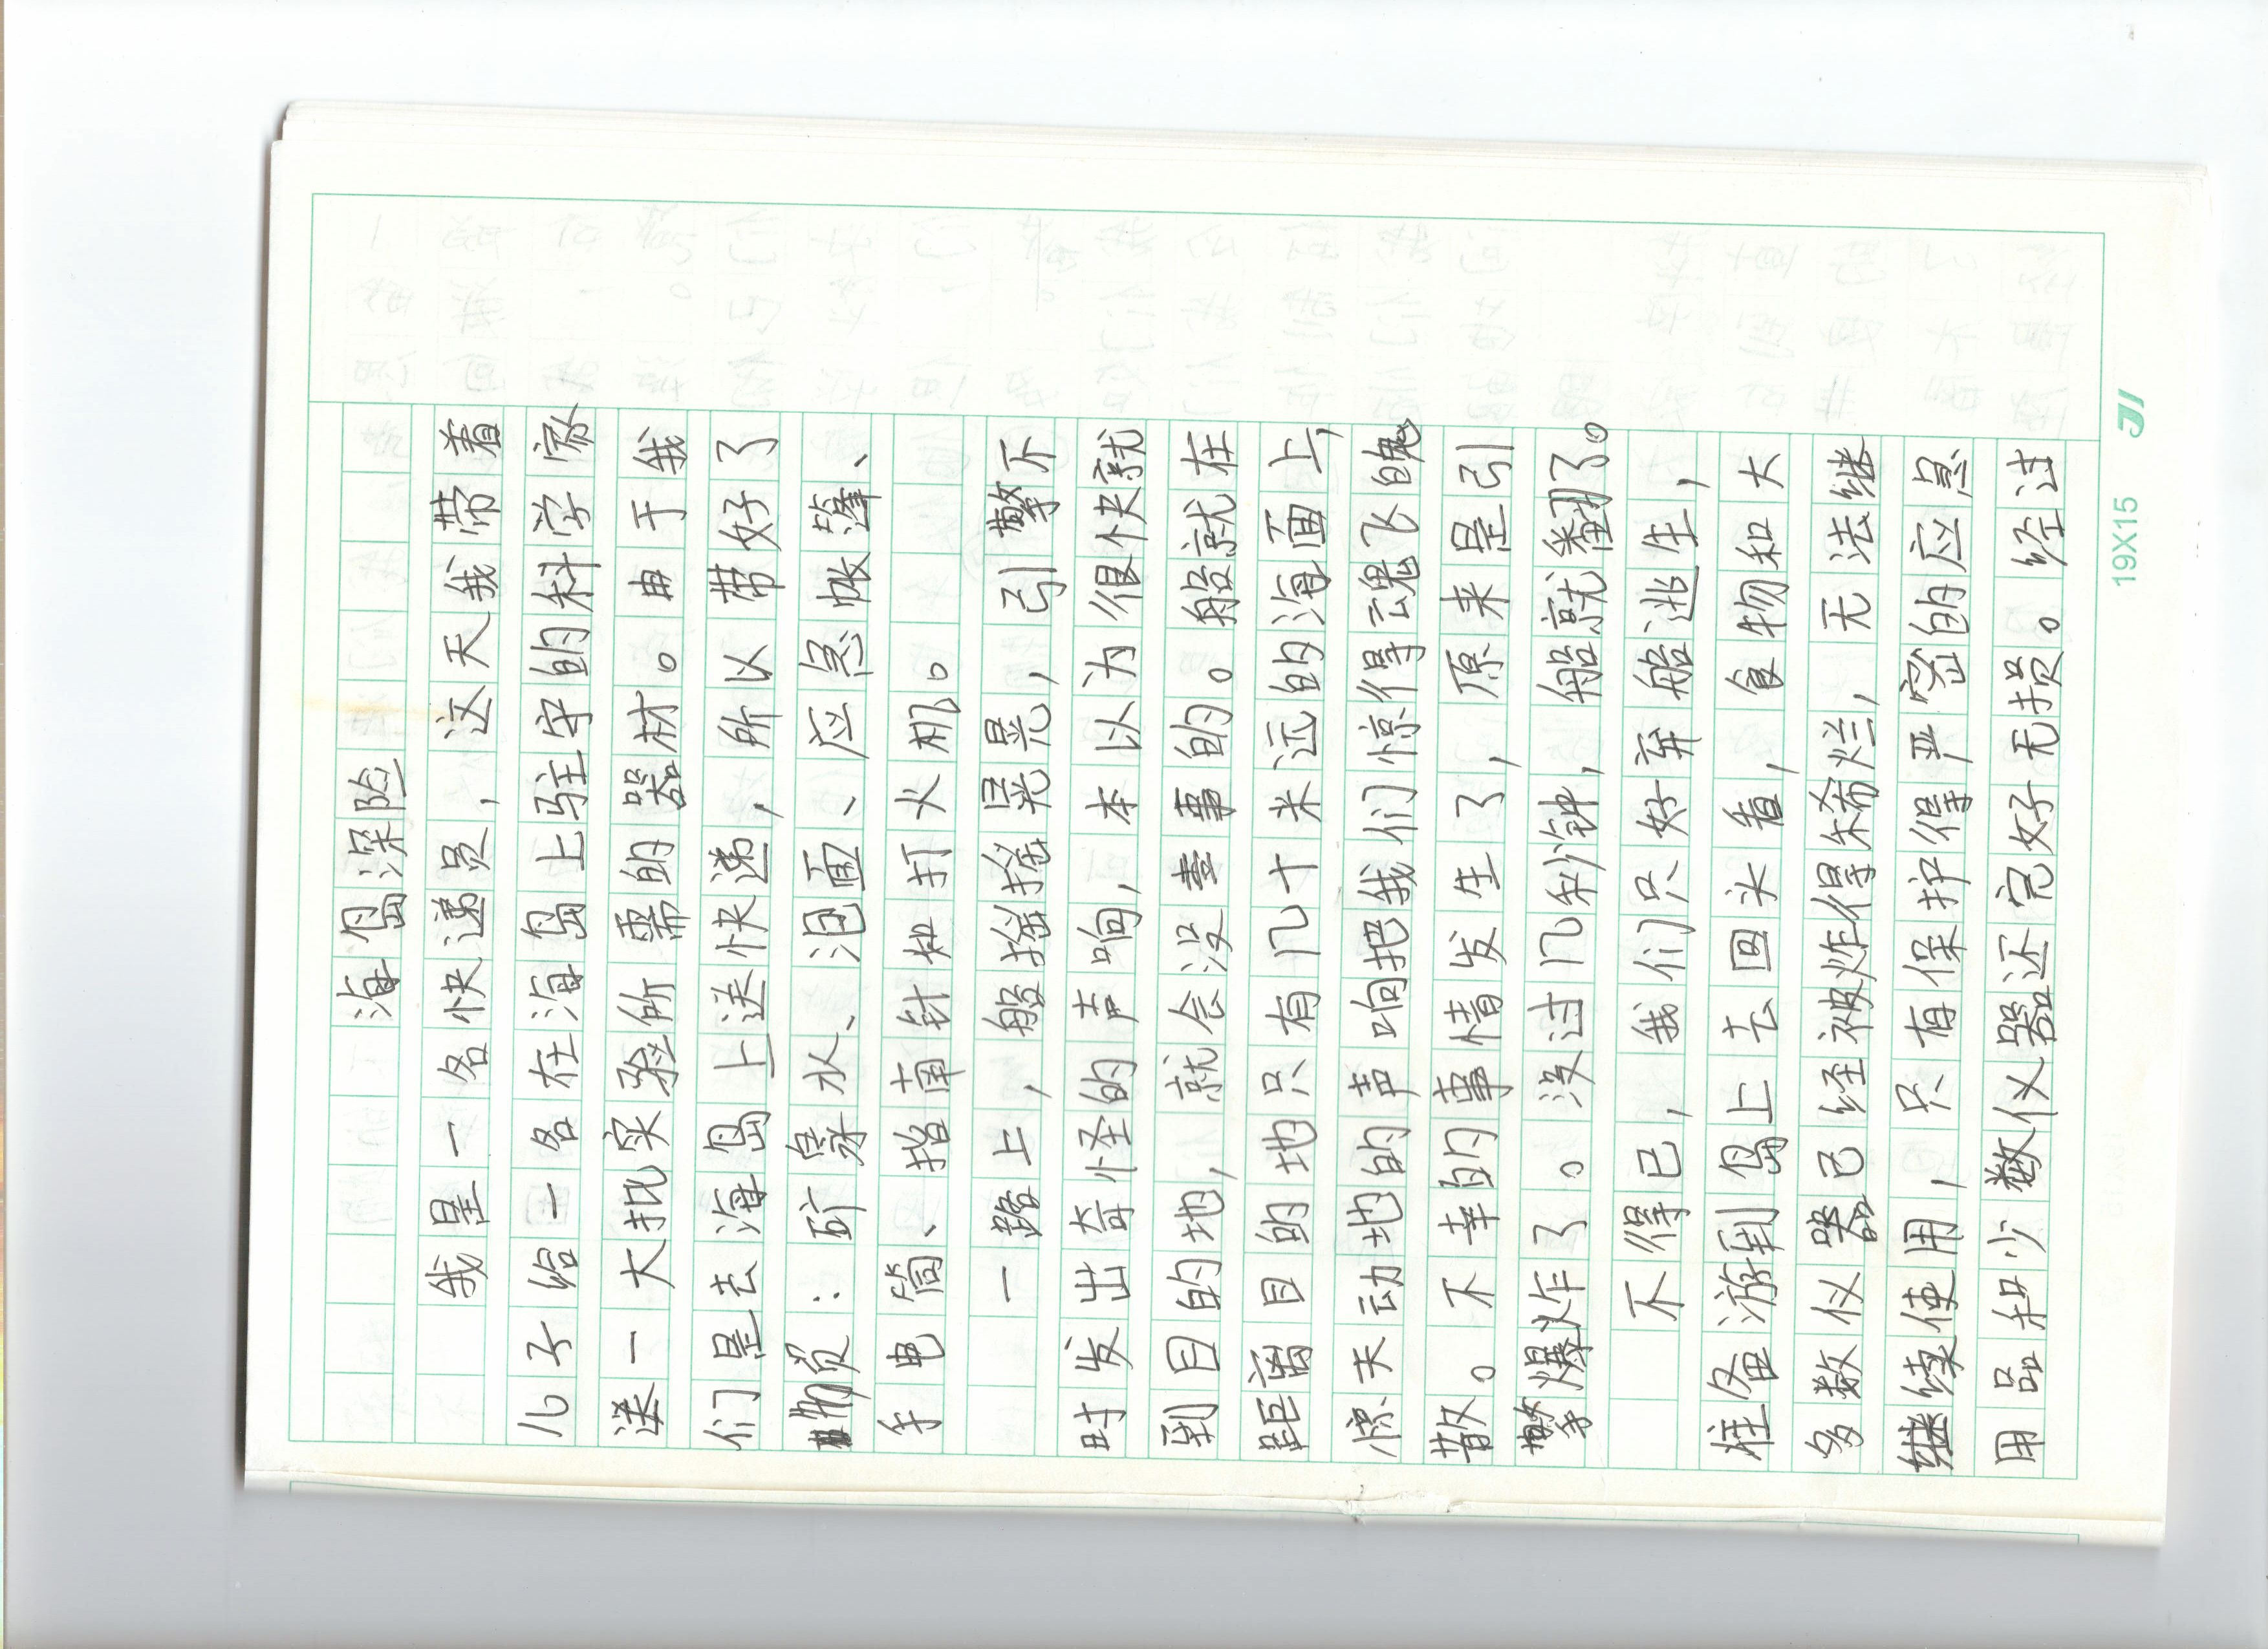 海岛探险
我是一名快递员，这天我带着
儿子给一名在海岛上驻守的科学家
送一大批实验所需的器材。由于我
们是去海岛上送快递，所以带好了
物资：矿泉水、泡面、应急帐篷、
手电筒、指南针和打火机。
一路上，船摇摇晃晃，引擎不
时发出奇怪的声响，本以为很快就
到目的地，就会没事的。船就在
距离目的地只有几十米远的海面上，
惊天动地的声响把我们惊得魂飞魄
散。不幸的事情发生了，原来是引
擎爆炸了。没过几秒钟，船就翻了。
不得已，我们只好弃船逃生，
准备游到岛上去回头看，食物和大
多数仪器已经被炸得稀烂，无法继
继续使用，只有保护得严密的应急
用品和少数仪器还完好无损。经过
19X15